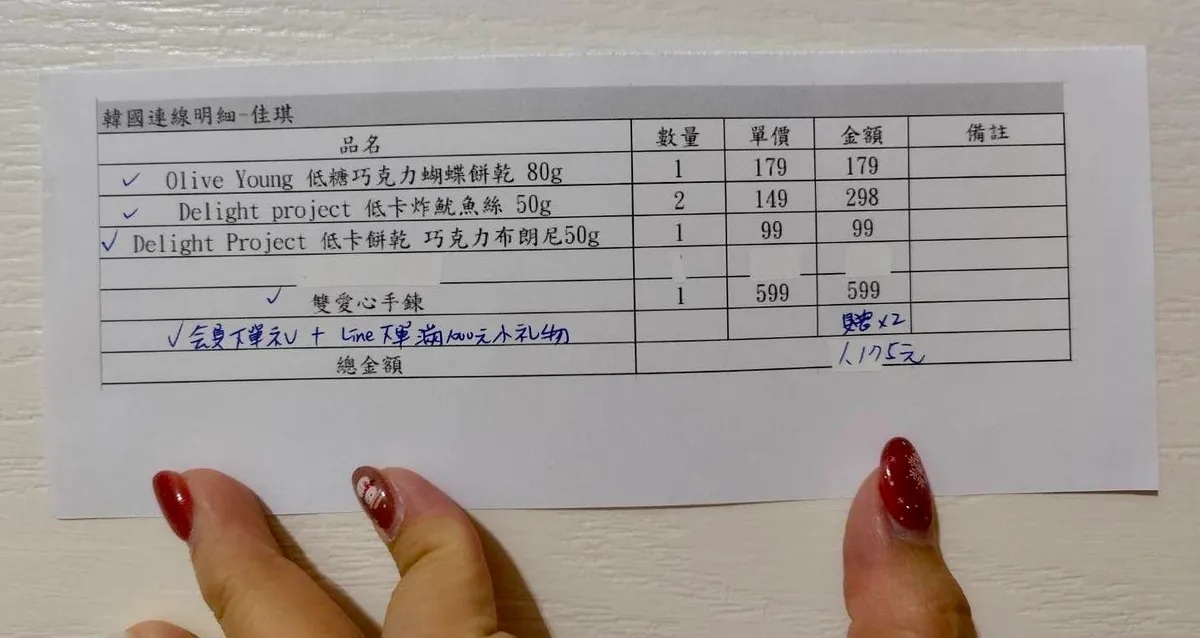 韓國連線明細-佳琪
品名 數量 單價 金額 備註
✓ Olive Young 低糖巧克力蝴蝶餅乾 80g 1 179 179
✓ Delight project 低卡炸魷魚絲 50g 2 149 298
✓ Delight Project 低卡餅乾 巧克力布朗尼50g 1 99 99
✓ 雙愛心手鍊 1 599 599
✓会員下單礼 + Line下單滿1000元小礼物 x2
總金額 1,175元